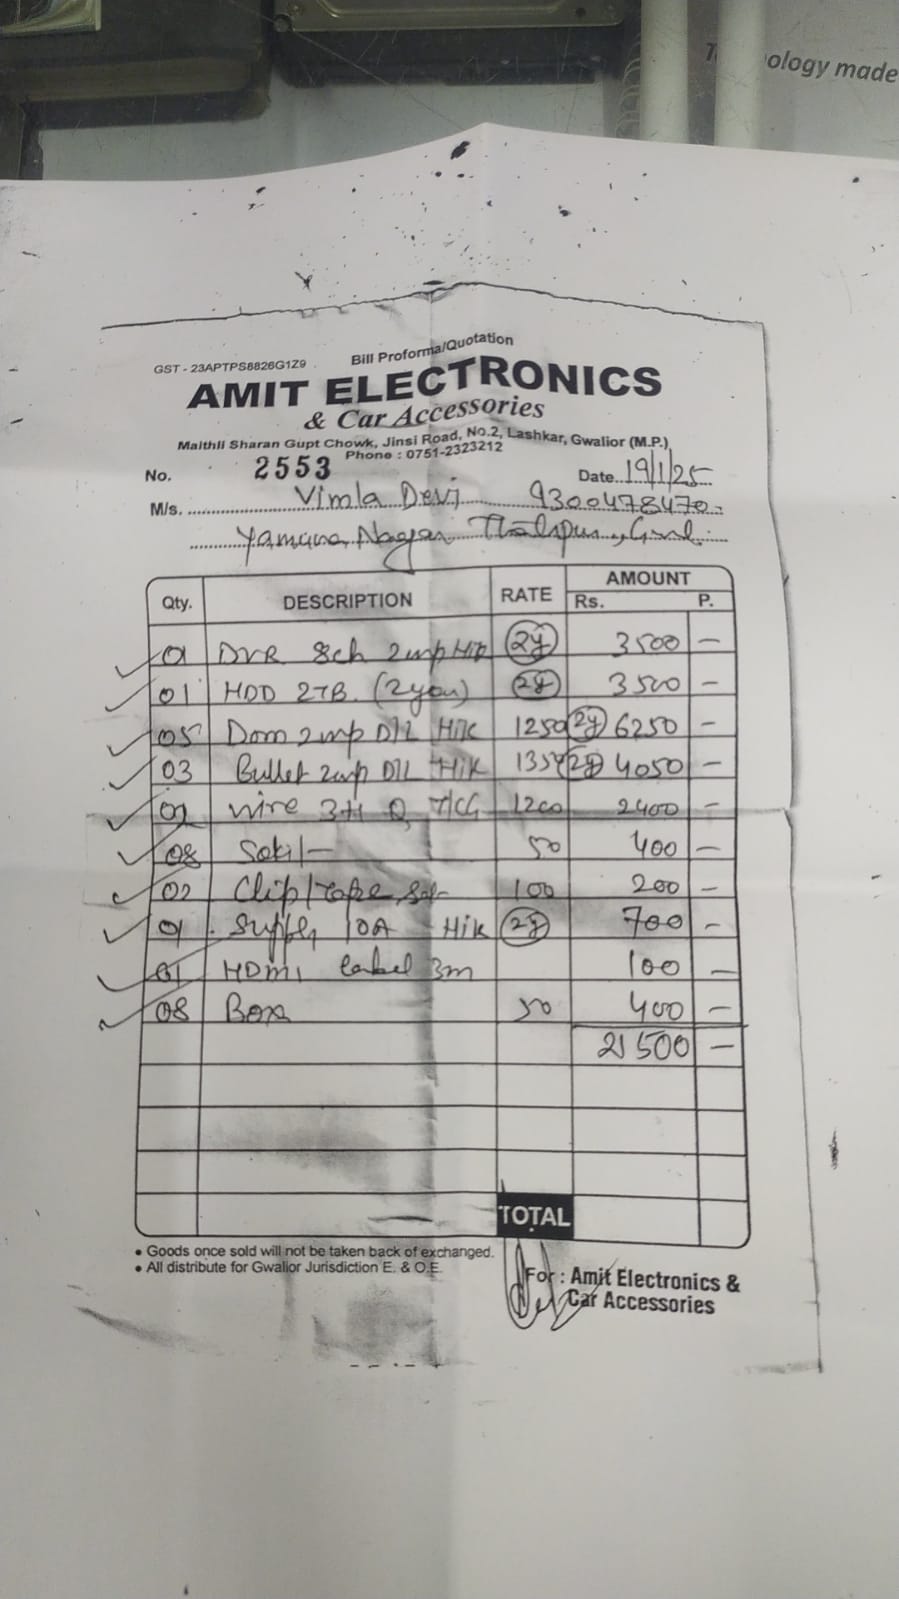 ology made
Bill Proforma/Quotation
GST - 23APTPS8826G1Z9
AMIT ELECTRONICS
& Car Accessories
Maithli Sharan Gupt Chowk, Jinsi Road, No.2, Lashkar, Gwalior (M.P.)
Phone : 0751-2323212
No. 2553 Date. 19/1/25
M/s. Vimla Devi 9300478470
Yamuna Nagar
Qty. DESCRIPTION RATE AMOUNT
Rs. P.
01 DVR 8ch 2mp Hik 2y 3500 —
01 HDD 2TB. (2year) 2y 3500 —
05 Dom 2mp D/L Hik 1250 2y 6250 —
03 Bullet 2mp D/L Hik 1350 2y 4050 —
02 wire 3+1 1200 2400 —
08 50 400 —
02 Clip/Tape 100 200 —
01 Supply 10A Hik 2y 700 —
01 HDMI cabel 3m 100 —
08 Box 50 400 —
21500 —
TOTAL
• Goods once sold will not be taken back of exchanged.
• All distribute for Gwalior Jurisdiction E. & O.E.
For : Amit Electronics &
Car Accessories